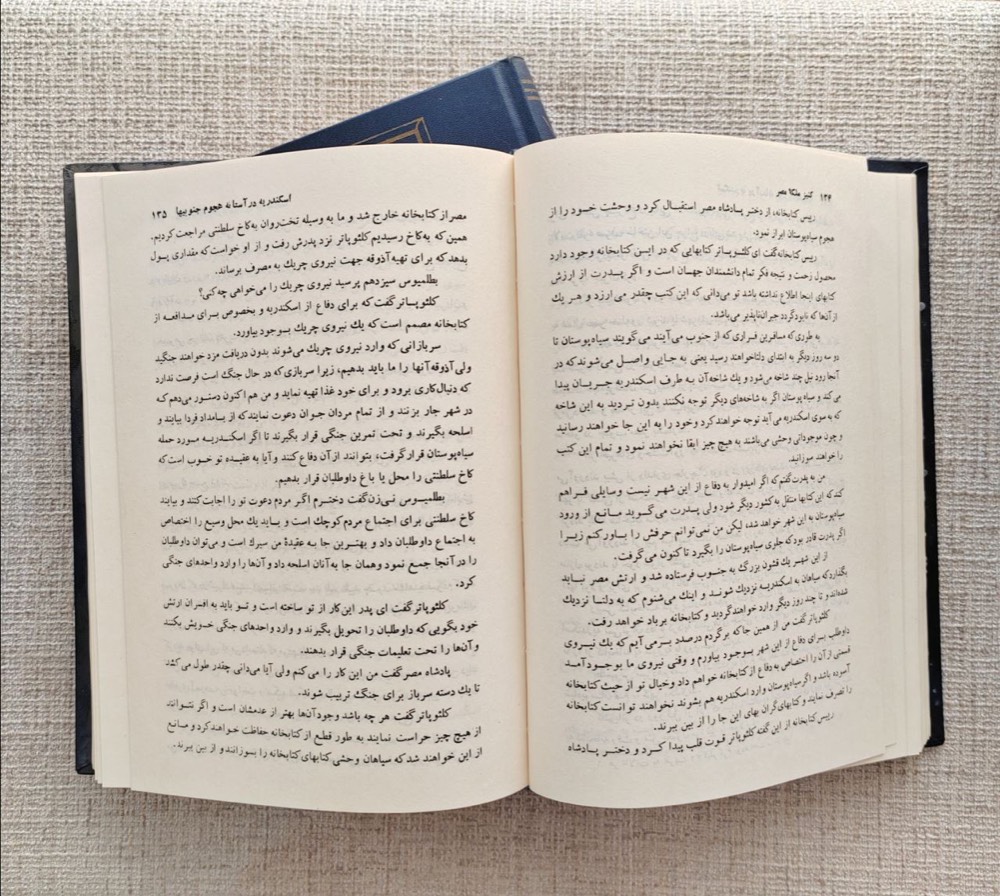 ۱۳۴ کنیز ملکهٔ مصر
رییس کتابخانه، از دختر پادشاه مصر استقبال کرد و وحشت خود را از
هجوم سیاه‌پوستان ابراز نمود.
رییس کتابخانه گفت ای کلئوپاتر کتابهایی که در این کتابخانه وجود دارد
محصول زحمت و نتیجه فکر تمام دانشمندان جهان است و اگر پدرت از ارزش
کتابهای اینجا اطلاع نداشته باشد تو می‌دانی که این کتب چقدر می‌ارزد و هر یك
از آن‌ها که نابود گردد جبران‌ناپذیر می‌باشد.
به طوری که مسافرین فراری که از جنوب می‌آیند می‌گویند سیاه‌پوستان تا
دو سه روز دیگر به ابتدای دلتا خواهند رسید یعنی به جایی واصل می‌شوند که در
آنجا رود نیل چند شاخه می‌شود و یك شاخه آن به طرف اسکندریه جریان پیدا
می‌کند و سیاه‌پوستان اگر به شاخه‌های دیگر توجه نکنند بدون تردید به این شاخه
که به سوی اسکندریه می‌آید توجه خواهند کرد و خود را به این جا خواهند رسانید
و چون موجوداتی وحشی می‌باشند به هیچ چیز ابقا نخواهند نمود و تمام این کتب
را خواهند سوزانید.
من به پدرت گفتم که اگر امیدوار به دفاع از این شهر نیست وسایلی فراهم
کند که این کتابها منتقل به کشور دیگر شود ولی پدرت می‌گوید مانع از ورود
سیاه‌پوستان به این شهر خواهد شد، لیکن من نمی‌توانم حرفش را باور کنم زیرا
اگر پدرت قادر بود که جلوی سیاه‌پوستان را بگیرد تا کنون می‌گرفت.
از این شهر یك قشون بزرگ به جنوب فرستاده شد و ارتش مصر نباید
بگذارد که سیاهان به اسکندریه نزدیك شوند و اینك می‌شنوم که به دلتا نزدیك
شده‌اند و تا چند روز دیگر وارد خواهند گردید و کتابخانه بر باد خواهد رفت.
کلئوپاتر گفت من از همین جا که برگردم درصدد بر می‌آیم که یك نیروی
داوطلب برای دفاع از این شهر بوجود بیاورم و وقتی نیروی ما بوجود آمد
قسمتی از آن را اختصاص به دفاع از کتابخانه خواهم داد و خیال تو از حیث کتابخانه
آسوده باشد و اگر سیاه‌پوستان وارد اسکندریه هم بشوند نخواهند توانست کتابخانه
را تصرف نمایند و کتابهای گران بهای این جا را از بین ببرند.
رییس کتابخانه از این گفته کلئوپاتر قوت قلب پیدا کرد و دختر پادشاه
اسکندریه در آستانه هجوم جنوبیها ۱۳۵
مصر از کتابخانه خارج شد و ما به وسیله تخت‌روان به کاخ سلطنتی مراجعت کردیم.
همین که به کاخ رسیدیم کلئوپاتر نزد پدرش رفت و از او خواست که مقداری پول
بدهد که برای تهیه آذوقه جهت نیروی چریك به مصرف برساند.
بطلمیوس سیزدهم پرسید نیروی چریك را می‌خواهی چه کنی؟
کلئوپاتر گفت که برای دفاع از اسکندریه و بخصوص برای مدافعه از
کتابخانه مصمم است که یك نیروی چریك بوجود بیاورد.
سربازانی که وارد نیروی چریك می‌شوند بدون دریافت مزد خواهند جنگید
ولی آذوقه آنها را ما باید بدهیم، زیرا سربازی که در حال جنگ است فرصت ندارد
که دنبال کاری برود و برای خود غذا تهیه نماید و من هم اکنون دستور می‌دهم که
در شهر جار بزنند و از تمام مردان جوان دعوت نمایند که از بامداد فردا بیایند و
اسلحه بگیرند و تحت تمرین جنگی قرار بگیرند تا اگر اسکندریه مورد حمله
سیاه‌پوستان قرار گرفت، بتوانند از آن دفاع کنند و آیا به عقیده تو خوب است که
کاخ سلطنتی را محل یا باغ داوطلبان قرار بدهیم.
بطلمیوس نی‌زن گفت دخترم اگر مردم دعوت تو را اجابت کنند و بیایند
کاخ سلطنتی برای اجتماع مردم کوچك است و باید یك محل وسیع را اختصاص
به اجتماع داوطلبان داد و بهترین جا به عقیدهٔ من سیرك است و می‌توان داوطلبان
را در آنجا جمع نمود و همان جا به آنان اسلحه داد و آن‌ها را وارد واحدهای جنگی
کرد.
کلئوپاتر گفت ای پدر این کار از تو ساخته است و تو باید به افسران ارتش
خود بگویی که داوطلبان را تحویل بگیرند و وارد واحدهای جنگی خویش بکنند
و آن‌ها را تحت تعلیمات جنگی قرار بدهند.
پادشاه مصر گفت من این کار را می‌کنم ولی آیا می‌دانی چقدر طول می‌کشد
تا یك دسته سرباز برای جنگ تربیت شوند.
کلئوپاتر گفت هر چه باشد وجود آن‌ها بهتر از عدمشان است و اگر نتوانند
از هیچ چیز حراست نمایند به طور قطع از کتابخانه حفاظت خواهند کرد و مانع
از این خواهند شد که سیاهان وحشی کتابهای کتابخانه را بسوزانند و از بین ببرند.